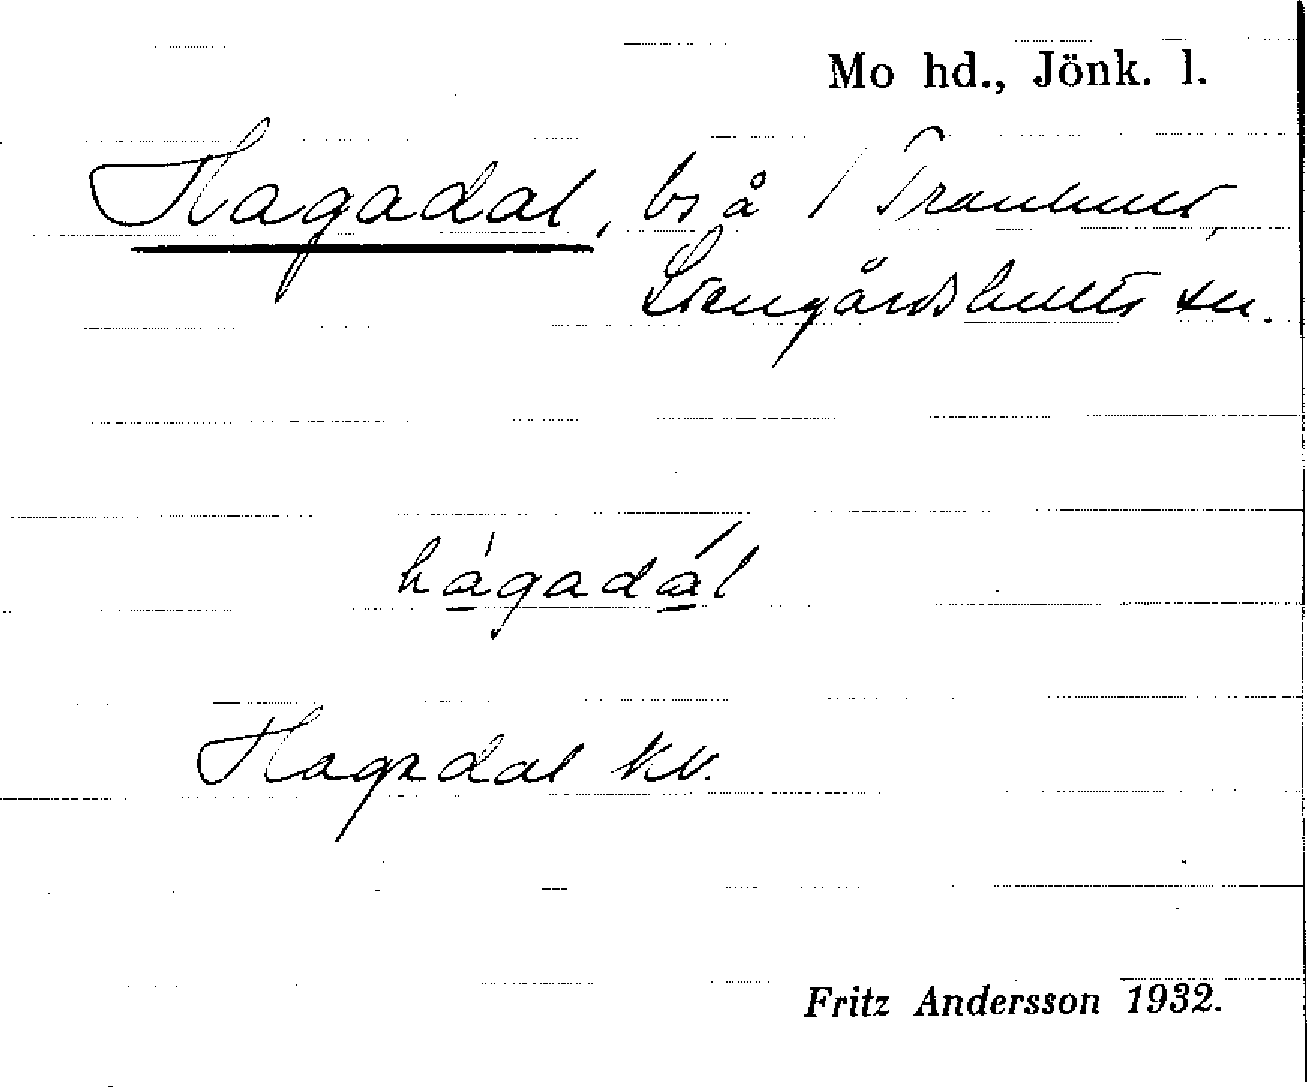 Mo hd., Jönk. l.
Hagadal, bs å 1 Tranhult,
Stengårdshults sn.
hágadál
Hagadal kv.
Fritz Andersson 1932.